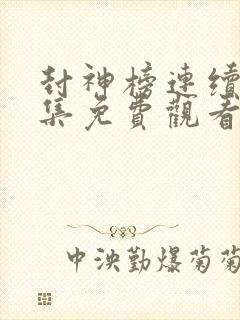 封神榜連續
集免費觀看
中泱勤爆菊菊